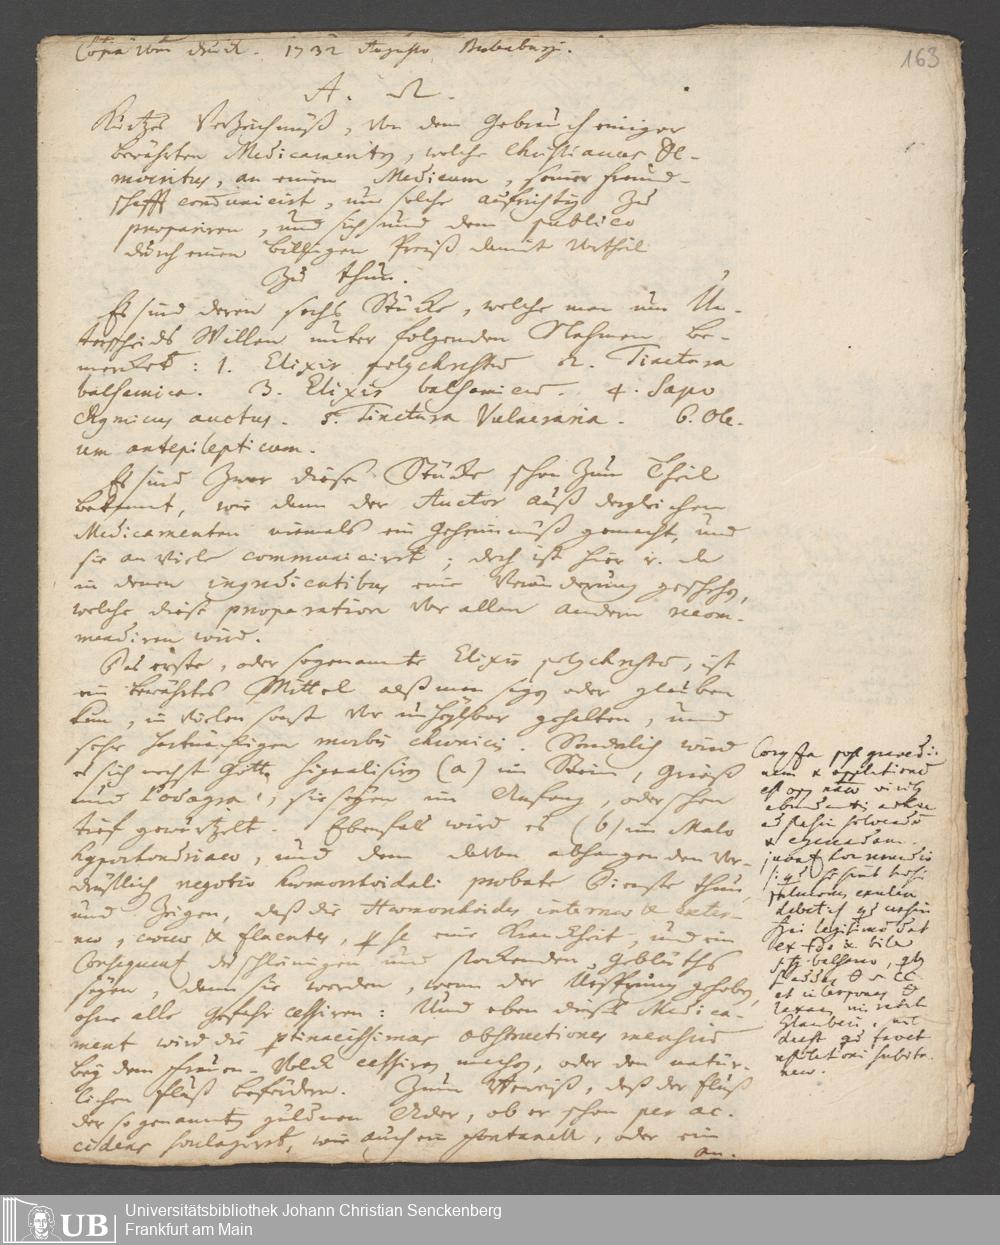 163
1732 Augusto
A. Ω.
Kurtzes Verzeichnüß, von dem Gebrauch einiger
bewährten Medicamenten, welche Christianus De-
mocritus, an einen Medicum, seiner Freund-
schafft communicirt, um solche aufrichtig zu
præpariren, und sich und dem publico
durch einen billigen Preiß damit Vortheil
zu thun.
Es sind deren sechs Stücke, welche man um Un-
terscheids Willen unter folgenden Nahmen be-
mercket: 1. Elixir polychrestum 2. Tinctura
balsamica. 3. Elixir balsamicum. 4. Sapo
chymicus auctus. 5. Tinctura Vulneraria. 6. Ole-
um antepilepticum.
Es sind zwar diese Stücke schon zum Theil
bekannt, wie dann der Auctor auß dergleichen
Medicamenten niemals ein Geheimnuß gemacht, und
sie an Viele communicirt; doch ist hier u. da
in denen ingredientibus eine Veränderung geschehen,
welche diese præparation vor allen andern recom-
mendiren wird.
Das erste, oder sogenannte Elixir polychrestum, ist
ein bewährtes Mittel alß man sagen oder glauben
kan, in vielen sonst vor unheylbar gehalten, und
sehr hartnäckigen morbis chronicis. Sonderlich wird
es sich nechst Gott signalisiren (a) im Stein, Grieß
und Podagra, sie seyen im Anfang, oder schon
tief gewurtzelt. Ebenfalls wird es (b) im Malo
hypochondriaco, und dem davon abhangenden ver-
drüßlich negotio hæmorrhoidali probate Dienste thun,
und zeigen, daß die Hæmorrhoides internæ & exter-
næ, cæcæ & fluentes, per se eine Kranckheit, und ein
Consequens des schleimigen und stockenden Geblüths
seyen, dann sie werden, wenn der Ursprung gehoben,
ohne alle Gefahr cessiren: Und eben dieses Medica-
ment wird die pertinacissimas obstructiones mensium
bey dem Frauen-Volck cessiren machen, oder den natür-
lichen Fluß befördern. Zum Beweiß, daß der Fluß
der sogenannten güldnen Ader, ob er schon per ac-
cidens soulagirt, wie auch ein Fontanell, oder ein
an-
Coryza post gravedi-
nem &
&
juvat
balsamo
et
Glauberi,
favet
UB
Universitätsbibliothek Johann Christian Senckenberg
Frankfurt am Main